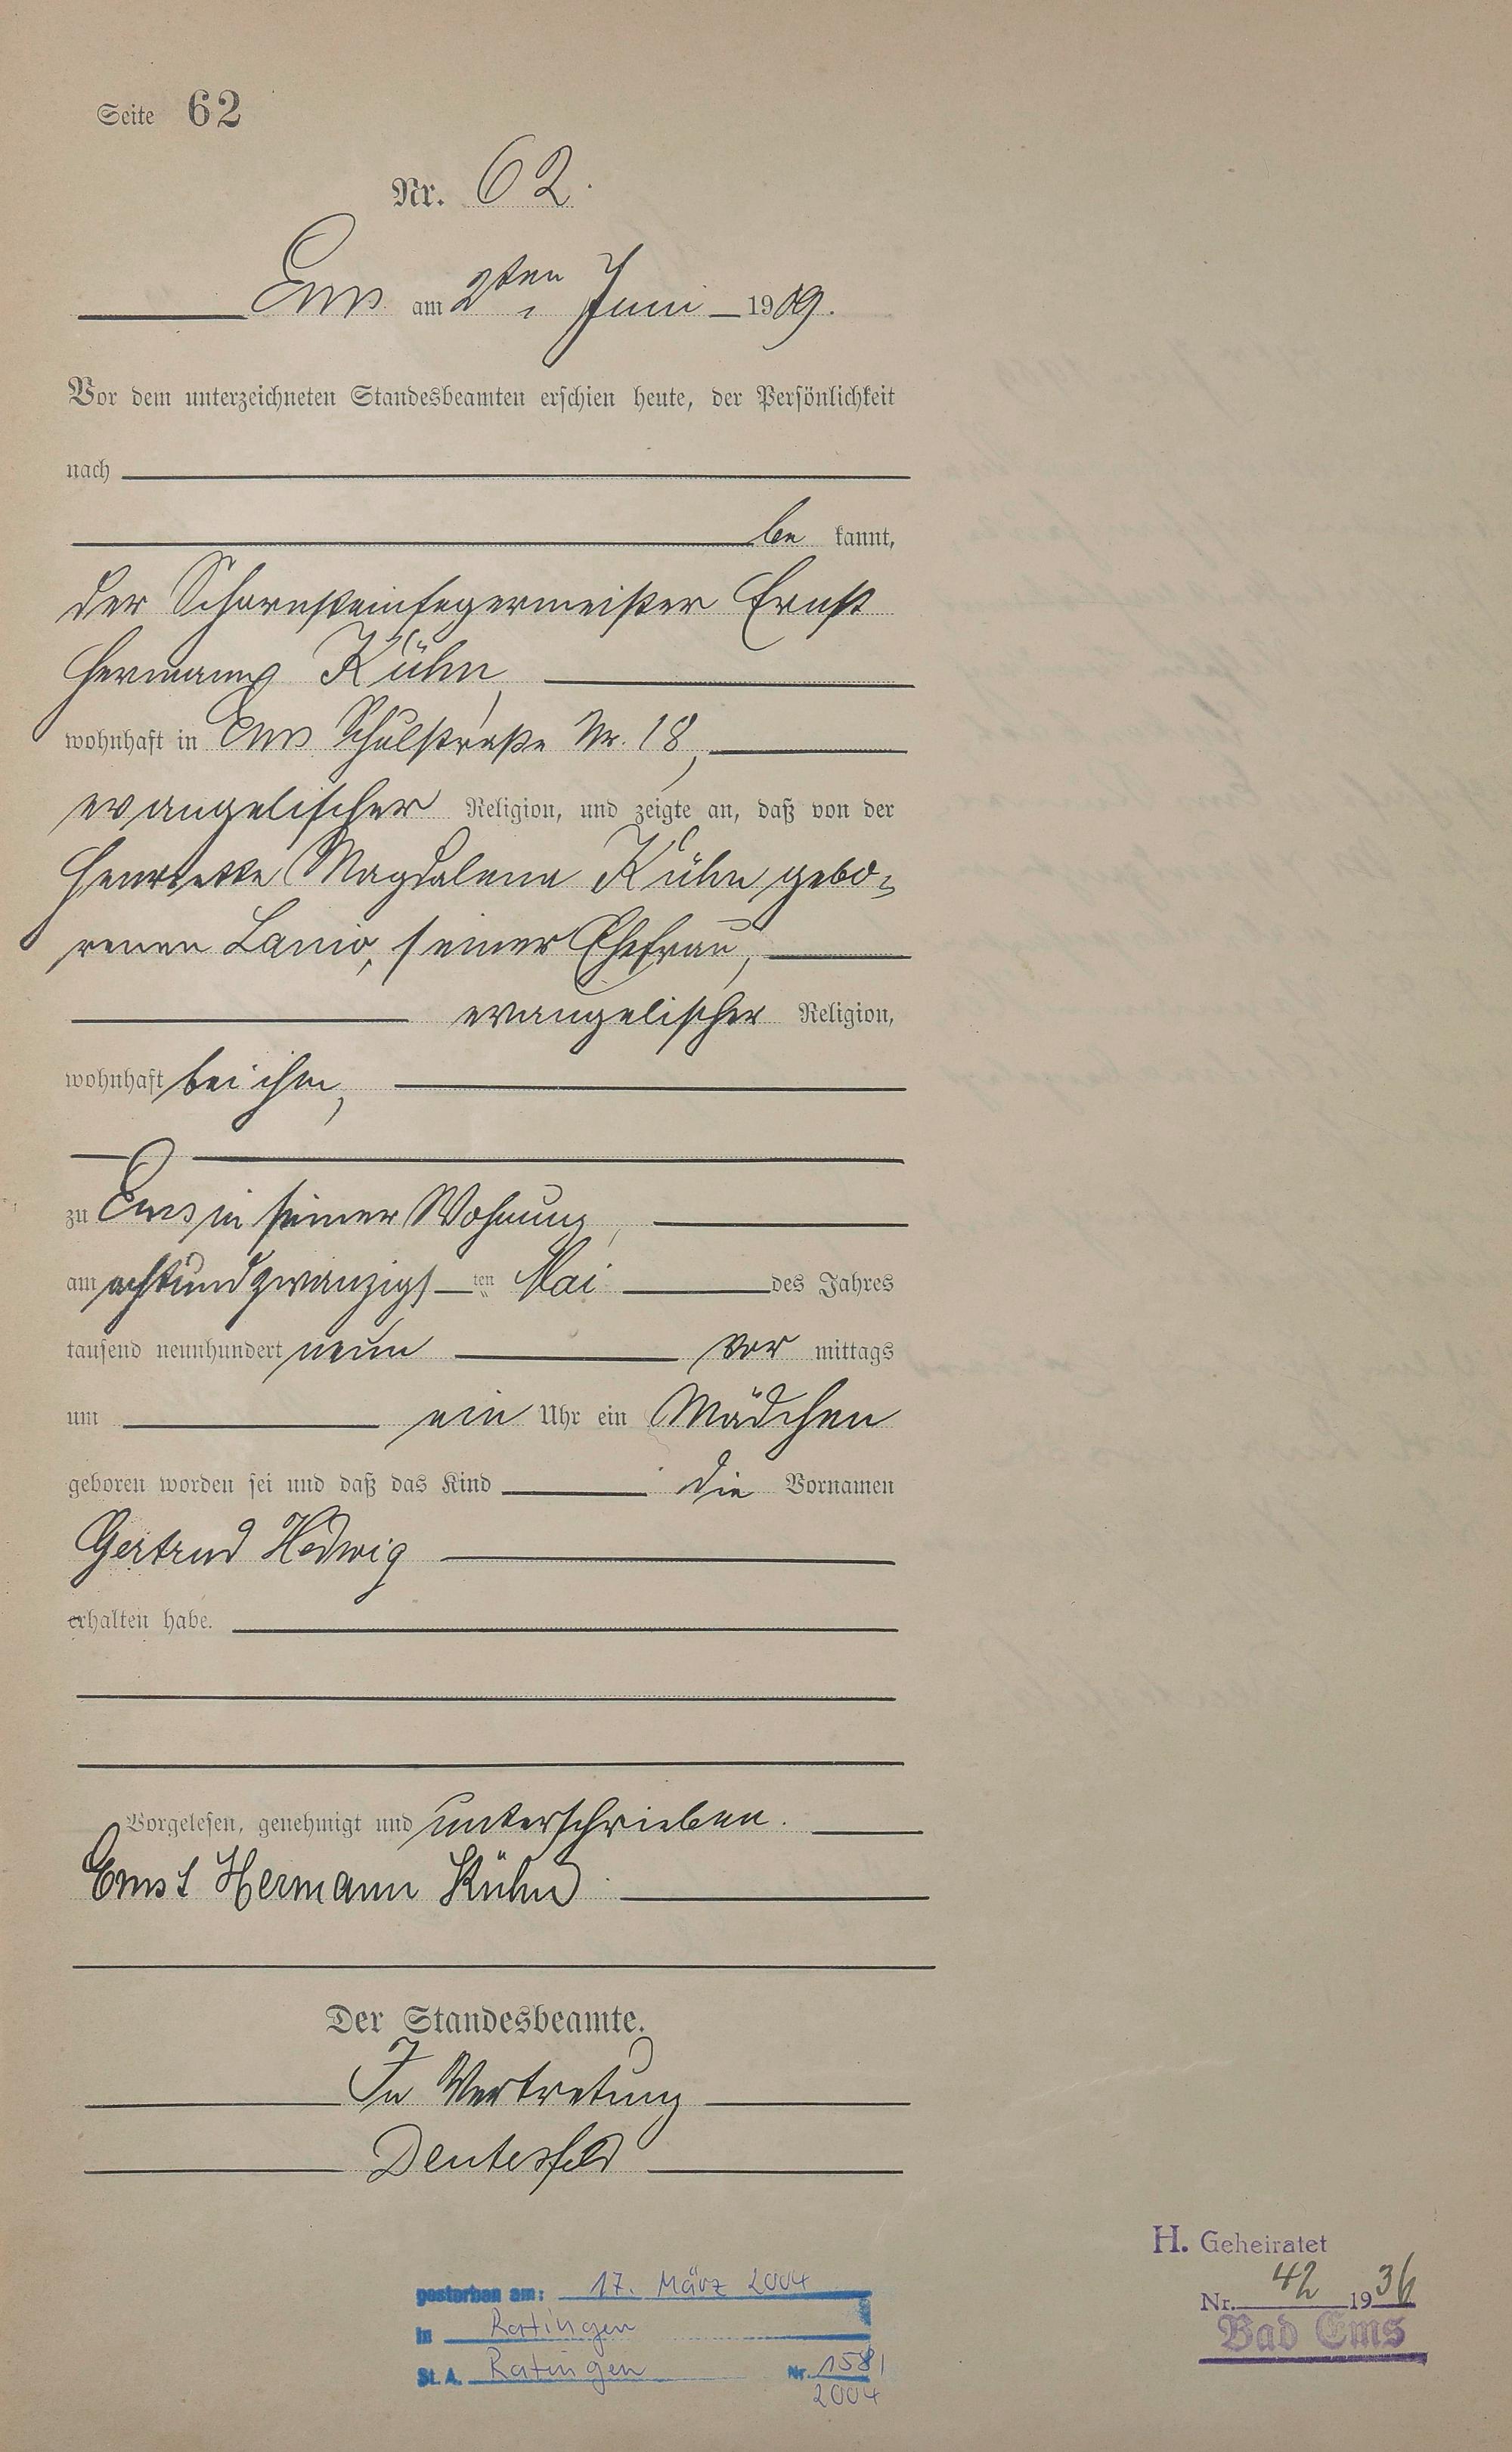 Seite 62
Nr. 62.
Ems am 2ten Juni 1909.
Vor dem unterzeichneten Standesbeamten erschien heute, der Persönlichkeit
nach
be kannt,
der Schornsteinfegermeister Ernst
Hermann Kühn,
wohnhaft in Ems Schulstraße Nr. 18,
evangelischer Religion, und zeigte an, daß von der
Henriette Magdalena Kühn gebo-
renen Lanio, seiner Ehefrau,
evangelischer Religion,
wohnhaft bei ihm,
zu Ems in seiner Wohnung,
am achtundzwanzigs ten Mai des Jahres
tausend neunhundert neun vor mittags
um ein Uhr ein Mädchen
geboren worden sei und daß das Kind die Vornamen
Gertrud Hedwig
erhalten habe.
Vorgelesen, genehmigt und unterschrieben.
Ernst Hermann Kühn
Der Standesbeamte.
In Vertretung
Deutesfeld
H. Geheiratet
Nr. 42 1936
Bad Ems
gestorben am: 17. März 2004
in Ratingen
St. A. Ratingen Nr. 158/
2004